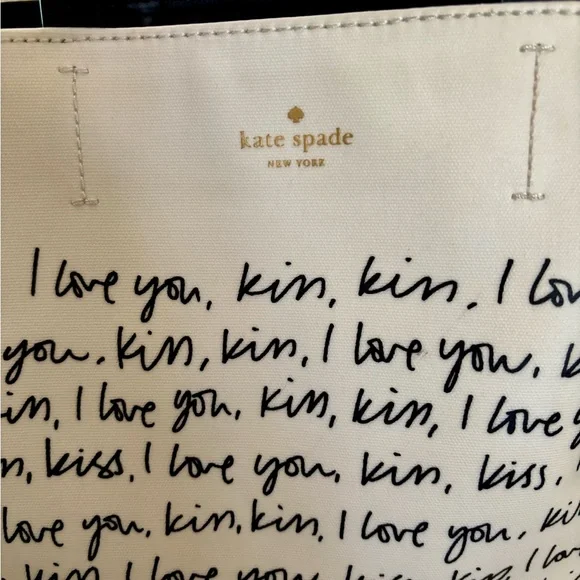 kate spade
NEW YORK
I love you, kiss, kiss, I lov
you, kiss, kiss, I love you, k
iss, I love you, kiss, kiss, I love y
s, kiss, I love you, kiss, kiss, I
love you, kiss, kiss, I love you, kis
kiss, I love you, kiss, kiss, I lov